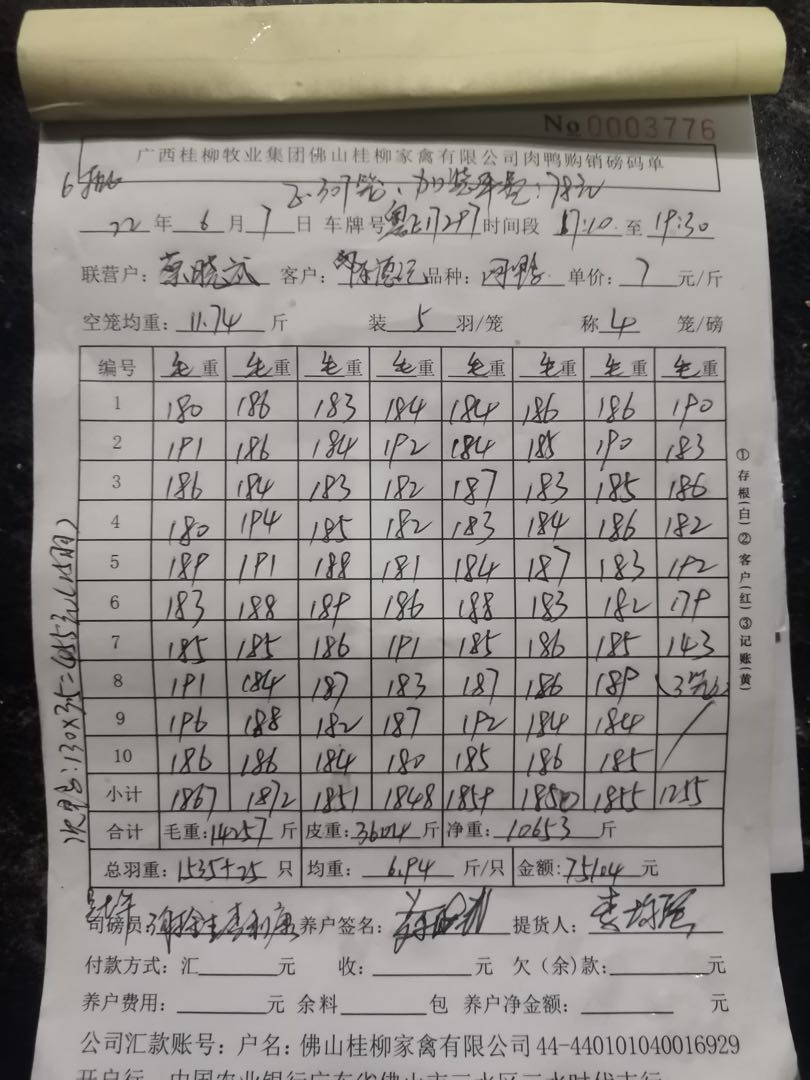 No 0003776
广西桂柳牧业集团佛山桂柳家禽有限公司肉鸭购销磅码单
307笼、
22 年 6 月 7 日 车牌号 粤E17297 时间段 17:10 至 19:30
联营户: 蔡晓斌 客户: 品种: 肉鸭 单价: 7 元/斤
空笼均重: 11.74 斤 装 5 羽/笼 称 4 笼/磅
编号 毛重 毛重 毛重 毛重 毛重 毛重 毛重 毛重
1 180 186 183 184 184 186 186 190
2 191 186 184 192 184 185 190 183
3 186 184 183 182 187 183 185 186
4 180 194 185 182 183 184 186 182
5 189 191 188 181 184 187 183 192
6 183 188 189 186 188 183 182 179
7 185 185 186 191 185 186 185 143
8 191 184 187 183 187 186 189 (3笼)
9 196 188 182 187 192 184 184
10 186 186 184 180 185 186 185
小计 1867 1872 1851 1848 1859 1850 1855 1255
合计 毛重: 14257 斤 皮重: 3604 斤 净重: 10653 斤
总羽重: 1535+25 只 均重: 6.94 斤/只 金额: 75104 元
司磅员: 养户签名: 提货人:
付款方式: 汇 元 收: 元 欠（余）款: 元
养户费用: 元 余料 包 养户净金额: 元
公司汇款账号: 户名: 佛山桂柳家禽有限公司 44-440101040016929
开户行 中国农业银行广东省佛山市三水区三水时代支行
①存根(白)②客户(红)③记账(黄)
130×35=4553